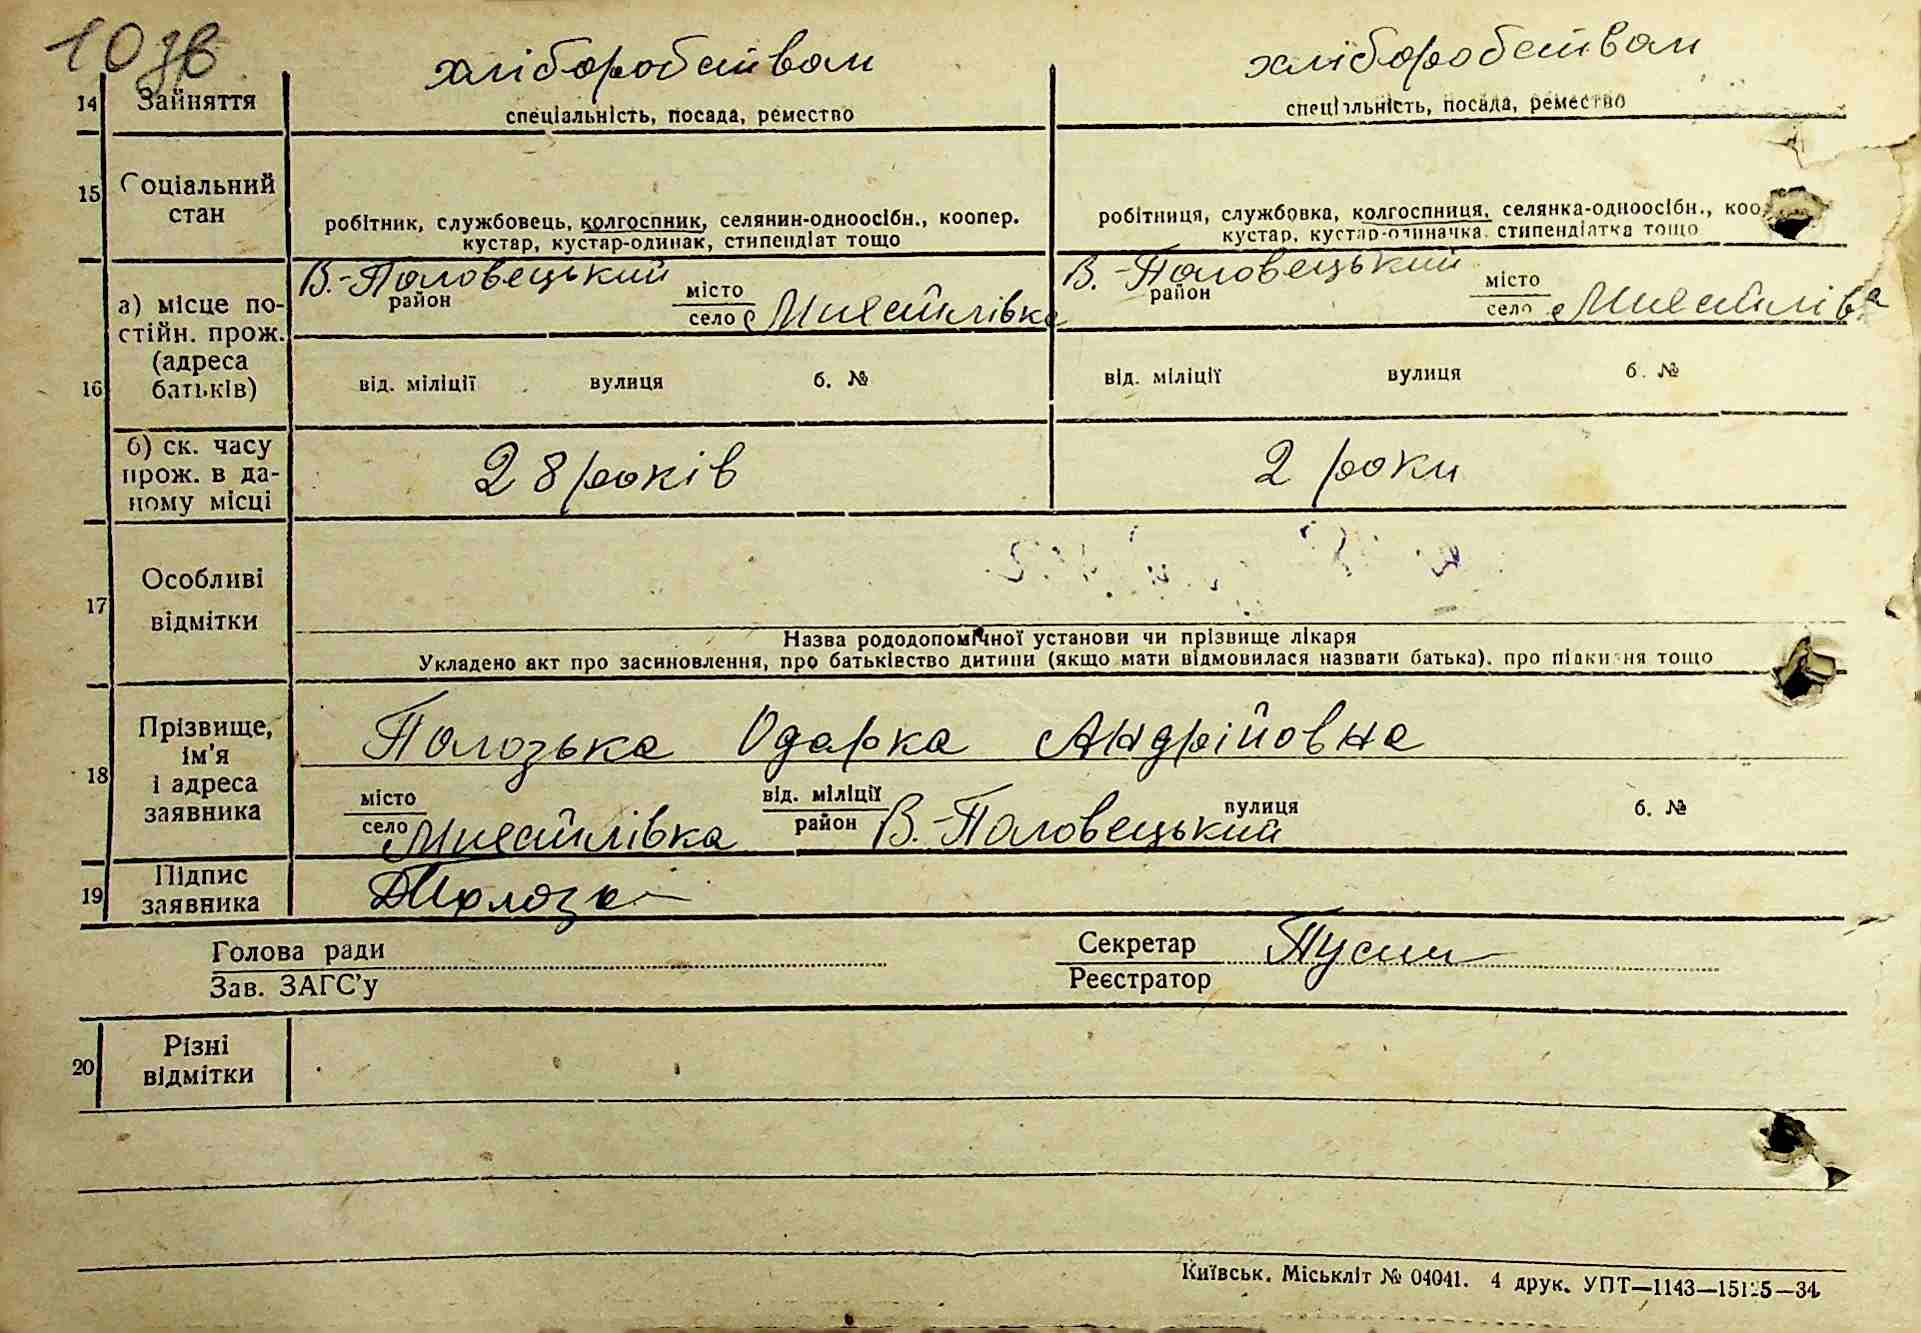 10 зв
хліборобством хліборобством
14 Зайняття спеціальність, посада, ремество спеціальність, посада, ремество
15 Соціальний стан
робітник, службовець, колгоспник, селянин-одноосібн., коопер. робітниця, службовка, колгоспниця, селянка-одноосібн., коо
кустар, кустар-одинак, стипендіат тощо кустар, кустар-одиначка, стипендіятка тощо
В.-Половецький район місто село Микитлівка В.-Половецький район місто село
16 а) місце постійн. прож. (адреса батьків)
від. міліції вулиця б. № від. міліції вулиця б. №
б) ск. часу прож. в даному місці 28 років 2 роки
17 Особливі відмітки
Назва рододопомічної установи чи прізвище лікаря
Укладено акт про засиновлення, про батьківство дитини (якщо мати відмовилася назвати батька). про підкидання тощо
18 Прізвище, ім'я і адреса заявника
Полозька Одарка Андрійовна
місто від. міліції вулиця б. №
село район В.-Половецький
19 Підпис заявника
Голова ради Секретар
Зав. ЗАГС'у Реєстратор
20 Різні відмітки
Київськ. Міськліт № 04041. 4 друк. УПТ—1143—15125—34